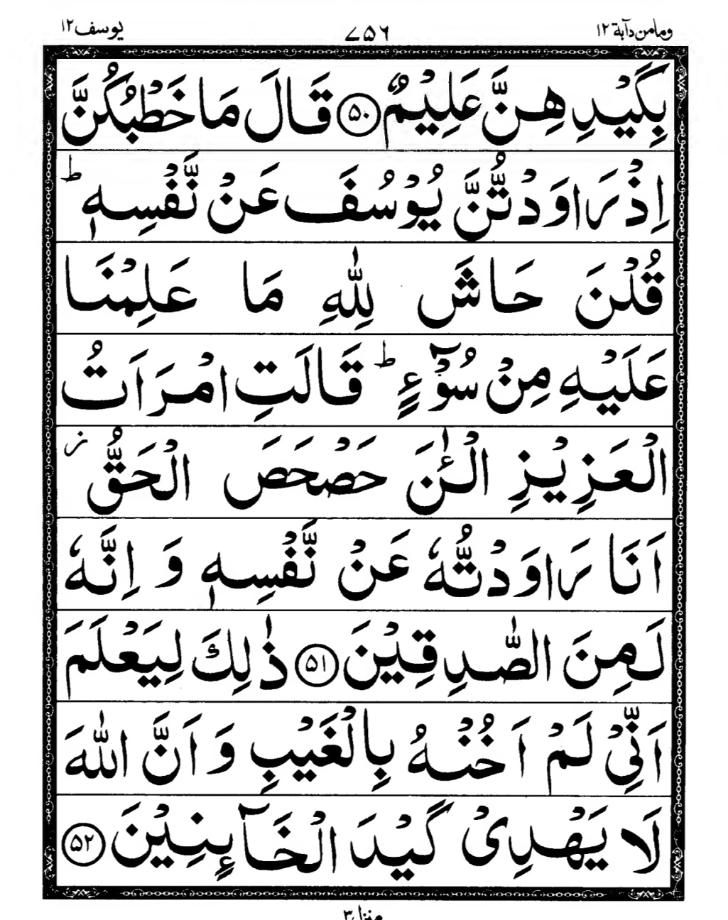 ومامن دآبة ١٢ ٧٥٦ يوسف ١٢
بِكَيْدِهِنَّ عَلِيْمٌ ﴿۵۰﴾ قَالَ مَا خَطْبُكُنَّ
اِذْ رَاوَدْتُّنَّ يُوْسُفَ عَنْ نَّفْسِهٖ ؕ
قُلْنَ حَاشَ لِلّٰهِ مَا عَلِمْنَا
عَلَيْهِ مِنْ سُوْٓءٍ ؕ قَالَتِ امْرَاَتُ
الْعَزِيْزِ الْـٰٔنَ حَصْحَصَ الْحَقُّ ز
اَنَا رَاوَدْتُّهٗ عَنْ نَّفْسِهٖ وَ اِنَّهٗ
لَمِنَ الصّٰدِقِيْنَ ﴿۵۱﴾ ذٰلِكَ لِيَعْلَمَ
اَنِّيْ لَمْ اَخُنْهُ بِالْغَيْبِ وَ اَنَّ اللّٰهَ
لَا يَهْدِيْ كَيْدَ الْخَآئِنِيْنَ ﴿۵۲﴾
منزل ٣